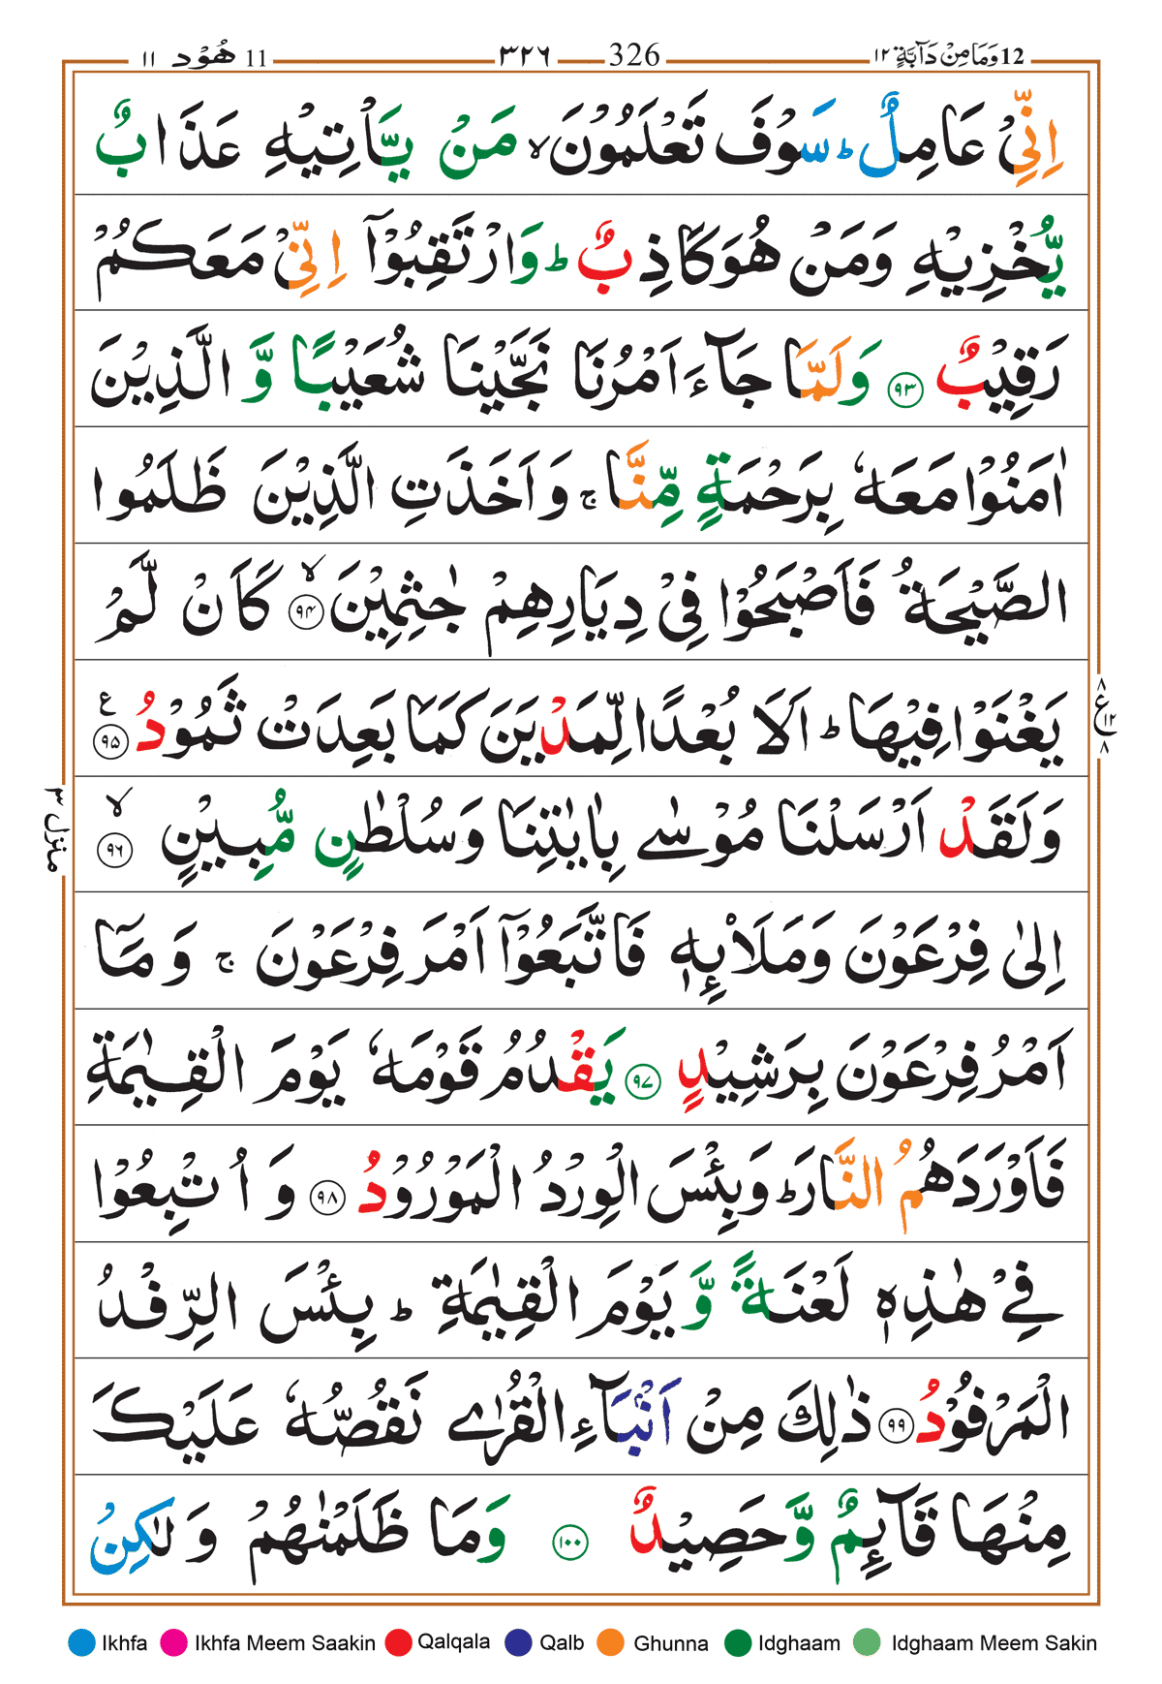 12 وَمَا مِنْ دَآبَّةٍ ١٢ 326 ٣٢٦ 11 هُوْد ١١
اِنِّىْ عَامِلٌ ؕ سَوْفَ تَعْلَمُوْنَ ۙ مَنْ يَّاْتِيْهِ عَذَابٌ
يُّخْزِيْهِ وَمَنْ هُوَ كَاذِبٌ ؕ وَارْتَقِبُوْۤا اِنِّىْ مَعَكُمْ
رَقِيْبٌ ﴿۹۳﴾ وَلَمَّا جَآءَ اَمْرُنَا نَجَّيْنَا شُعَيْبًا وَّ الَّذِيْنَ
اٰمَنُوْا مَعَهٗ بِرَحْمَةٍ مِّنَّا ۚ وَاَخَذَتِ الَّذِيْنَ ظَلَمُوا
الصَّيْحَةُ فَاَصْبَحُوْا فِىْ دِيَارِهِمْ جٰثِمِيْنَ ۙ﴿۹۴﴾ كَاَنْ لَّمْ
يَغْنَوْا فِيْهَا ؕ اَلَا بُعْدًا لِّمَدْيَنَ كَمَا بَعِدَتْ ثَمُوْدُ ﴿۹۵﴾ ع
ع ١٢ ٨ ٨
وَلَقَدْ اَرْسَلْنَا مُوْسٰى بِاٰيٰتِنَا وَسُلْطٰنٍ مُّبِيْنٍ ۙ﴿۹۶﴾
منزل ٣
اِلٰى فِرْعَوْنَ وَمَلَا۟ئِهٖ فَاتَّبَعُوْۤا اَمْرَ فِرْعَوْنَ ۚ وَمَاۤ
اَمْرُ فِرْعَوْنَ بِرَشِيْدٍ ﴿۹۷﴾ يَقْدُمُ قَوْمَهٗ يَوْمَ الْقِيٰمَةِ
فَاَوْرَدَهُمُ النَّارَ ؕ وَبِئْسَ الْوِرْدُ الْمَوْرُوْدُ ﴿۹۸﴾ وَ اُتْبِعُوْا
فِىْ هٰذِهٖ لَعْنَةً وَّ يَوْمَ الْقِيٰمَةِ ؕ بِئْسَ الرِّفْدُ
الْمَرْفُوْدُ ﴿۹۹﴾ ذٰلِكَ مِنْ اَنْۢبَآءِ الْقُرٰى نَقُصُّهٗ عَلَيْكَ
مِنْهَا قَآئِمٌ وَّ حَصِيْدٌ ﴿۱۰۰﴾ وَمَا ظَلَمْنٰهُمْ وَ لٰكِنْ
Ikhfa Ikhfa Meem Saakin Qalqala Qalb Ghunna Idghaam Idghaam Meem Sakin